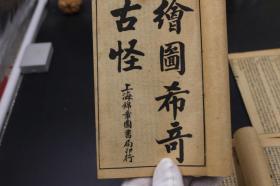 繪圖希奇
古怪
上海錦章圖書局印行